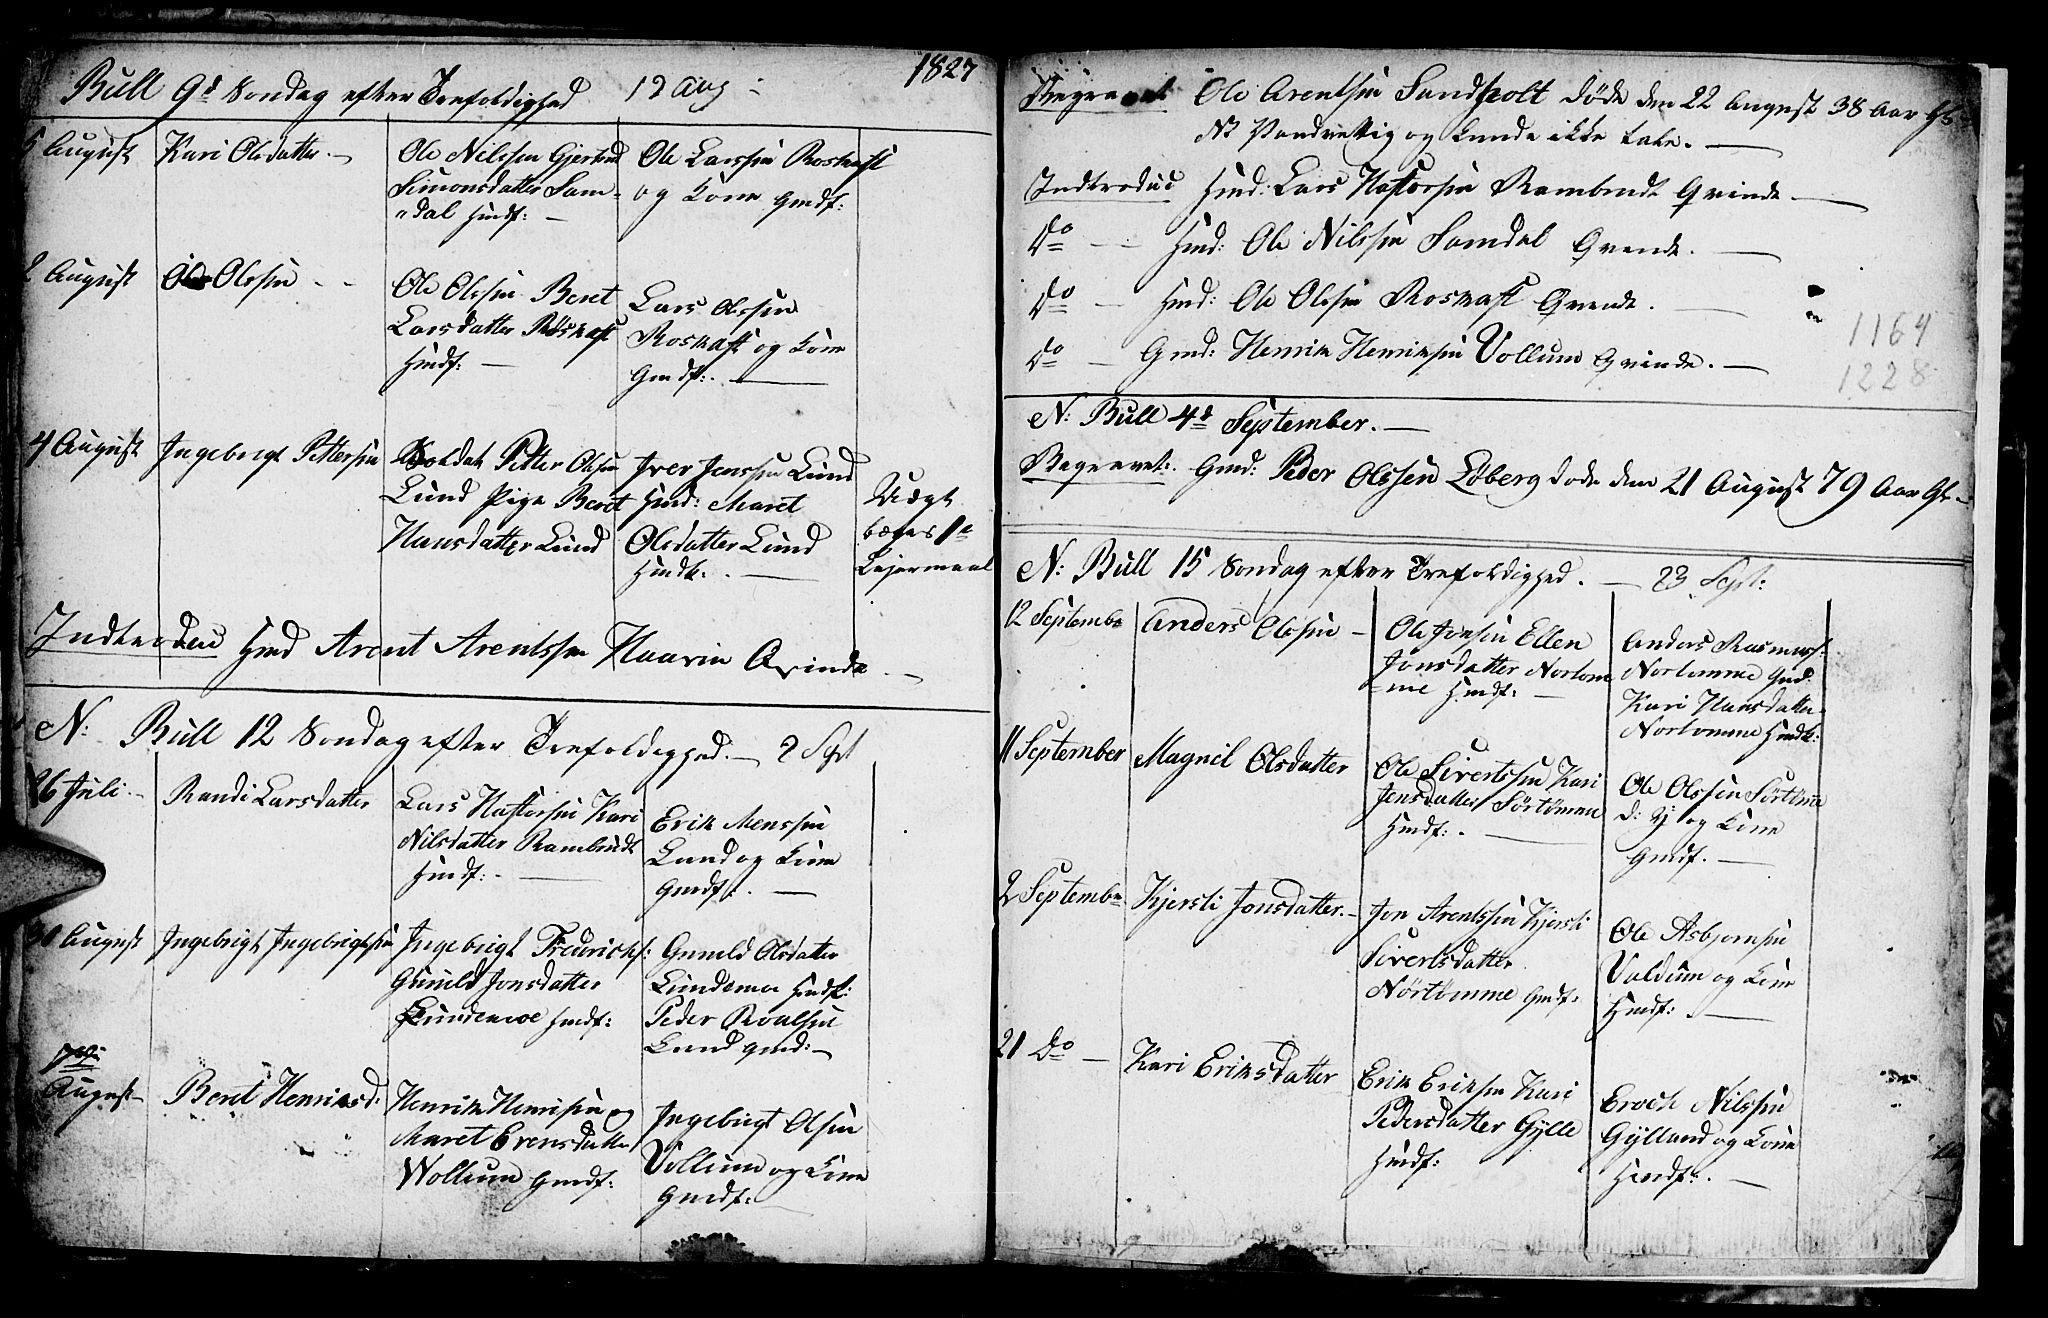 1827
Bull 9d Søndag efter Trefoldighed 12 Aug
5 August Kari Olsdatter.
Ole Nilssen Gjertrud
Simonsdatter Sam-
dal Hmdf:
Ole Larssen Roskaft
og Kone Gmdf:
2 August Ole Olssen
Ole Olssen Beret
Larsdatter Röskaft
Hmdf:
Lars Olssen
Roskaft og Kone
Gmdf:.
4 August Ingebrigt Pettersen
Soldat Petter Olsen
Lund Pige Beret
Hansdatter Lund
Iver Jenssen Lund
Hmd: Maret
Olsdatter Lund
Hmdk:.
Uægt
begges 1e
Lejermaal
Indtroden Hmd Arent Arentssen Qvinde.
N: Bull 12 Søndag efter Trefoldighed. 2 Sept
26 Juli. Randi Larsdatter
Lars Haftorsen Kari
Nilsdatter Rambradt
Hmdf:
Erik Menssen
Lund og Kone
Gmdf:.
30 August Ingebrigt Ingebrigtsen
Ingebrigt Fredrichs:
Gunild Jonsdatter
Lundemoe Hmdf:
Gunild Olsdatter
Lundemoe Hmdf:
Peder Roalsen
Lund Gmd:
August Beret Henriksd:
Henrik Henrisen og
Maret Evensdatter
Wollum Gmdf:
Ingebrigt Olsen
Vollum og Kone
Gmdf:
Begravet Ole Arentsen Sundholt døde den 22 August 38 Aar Gl
NB Vandvittig og kunde ikke tale.
Indtroduc Hmd: Lars Haftorsen Rambradt Qvinde.
Do Hmd: Ole Nilssen Samdal Qvinde.
Do Hmd: Ole Olssen Roskaft Qvinde.
Do Gmd: Henrik Henriksen Vollum Qvinde.
1164
1228
N: Bull 4d September.
Begravet: Gmd: Peder Olssen Løberg døde den 21 August 79 Aar Gl
N: Bull 15 Søndag efter Trefoldighed. 23 Sept:
12 Septembr Anders Olssen
Ole Jonsen Ellen
Jonsdatter Nortom
me Hmdf:
Anders Rasmuss:
Nortomme Gmd:
Kari Hansdatter
Nortomme Hmdk:
11 September Magnil Olsdatter
Ole Sivertssen Kari
Jensdatter Sörtömme
Hmdf:.
Ole Olssen Sörtömme
D: Y og Kone
Gmdf.
2 Septembr Kjersti Jonsdatter.
Jon Arentssen Kjersti
Sivertsdatter
Nörtömme Gmdf:
Ole Asbjornsen
Valdum og Kone
Hmdf:.
21 Do Kari Eriksdatter
Erik Eriksen Kari
Pedersdatter Gylle
Hmdf:
Eroch Nilssen
Gylland og Kone
Hmdf:.